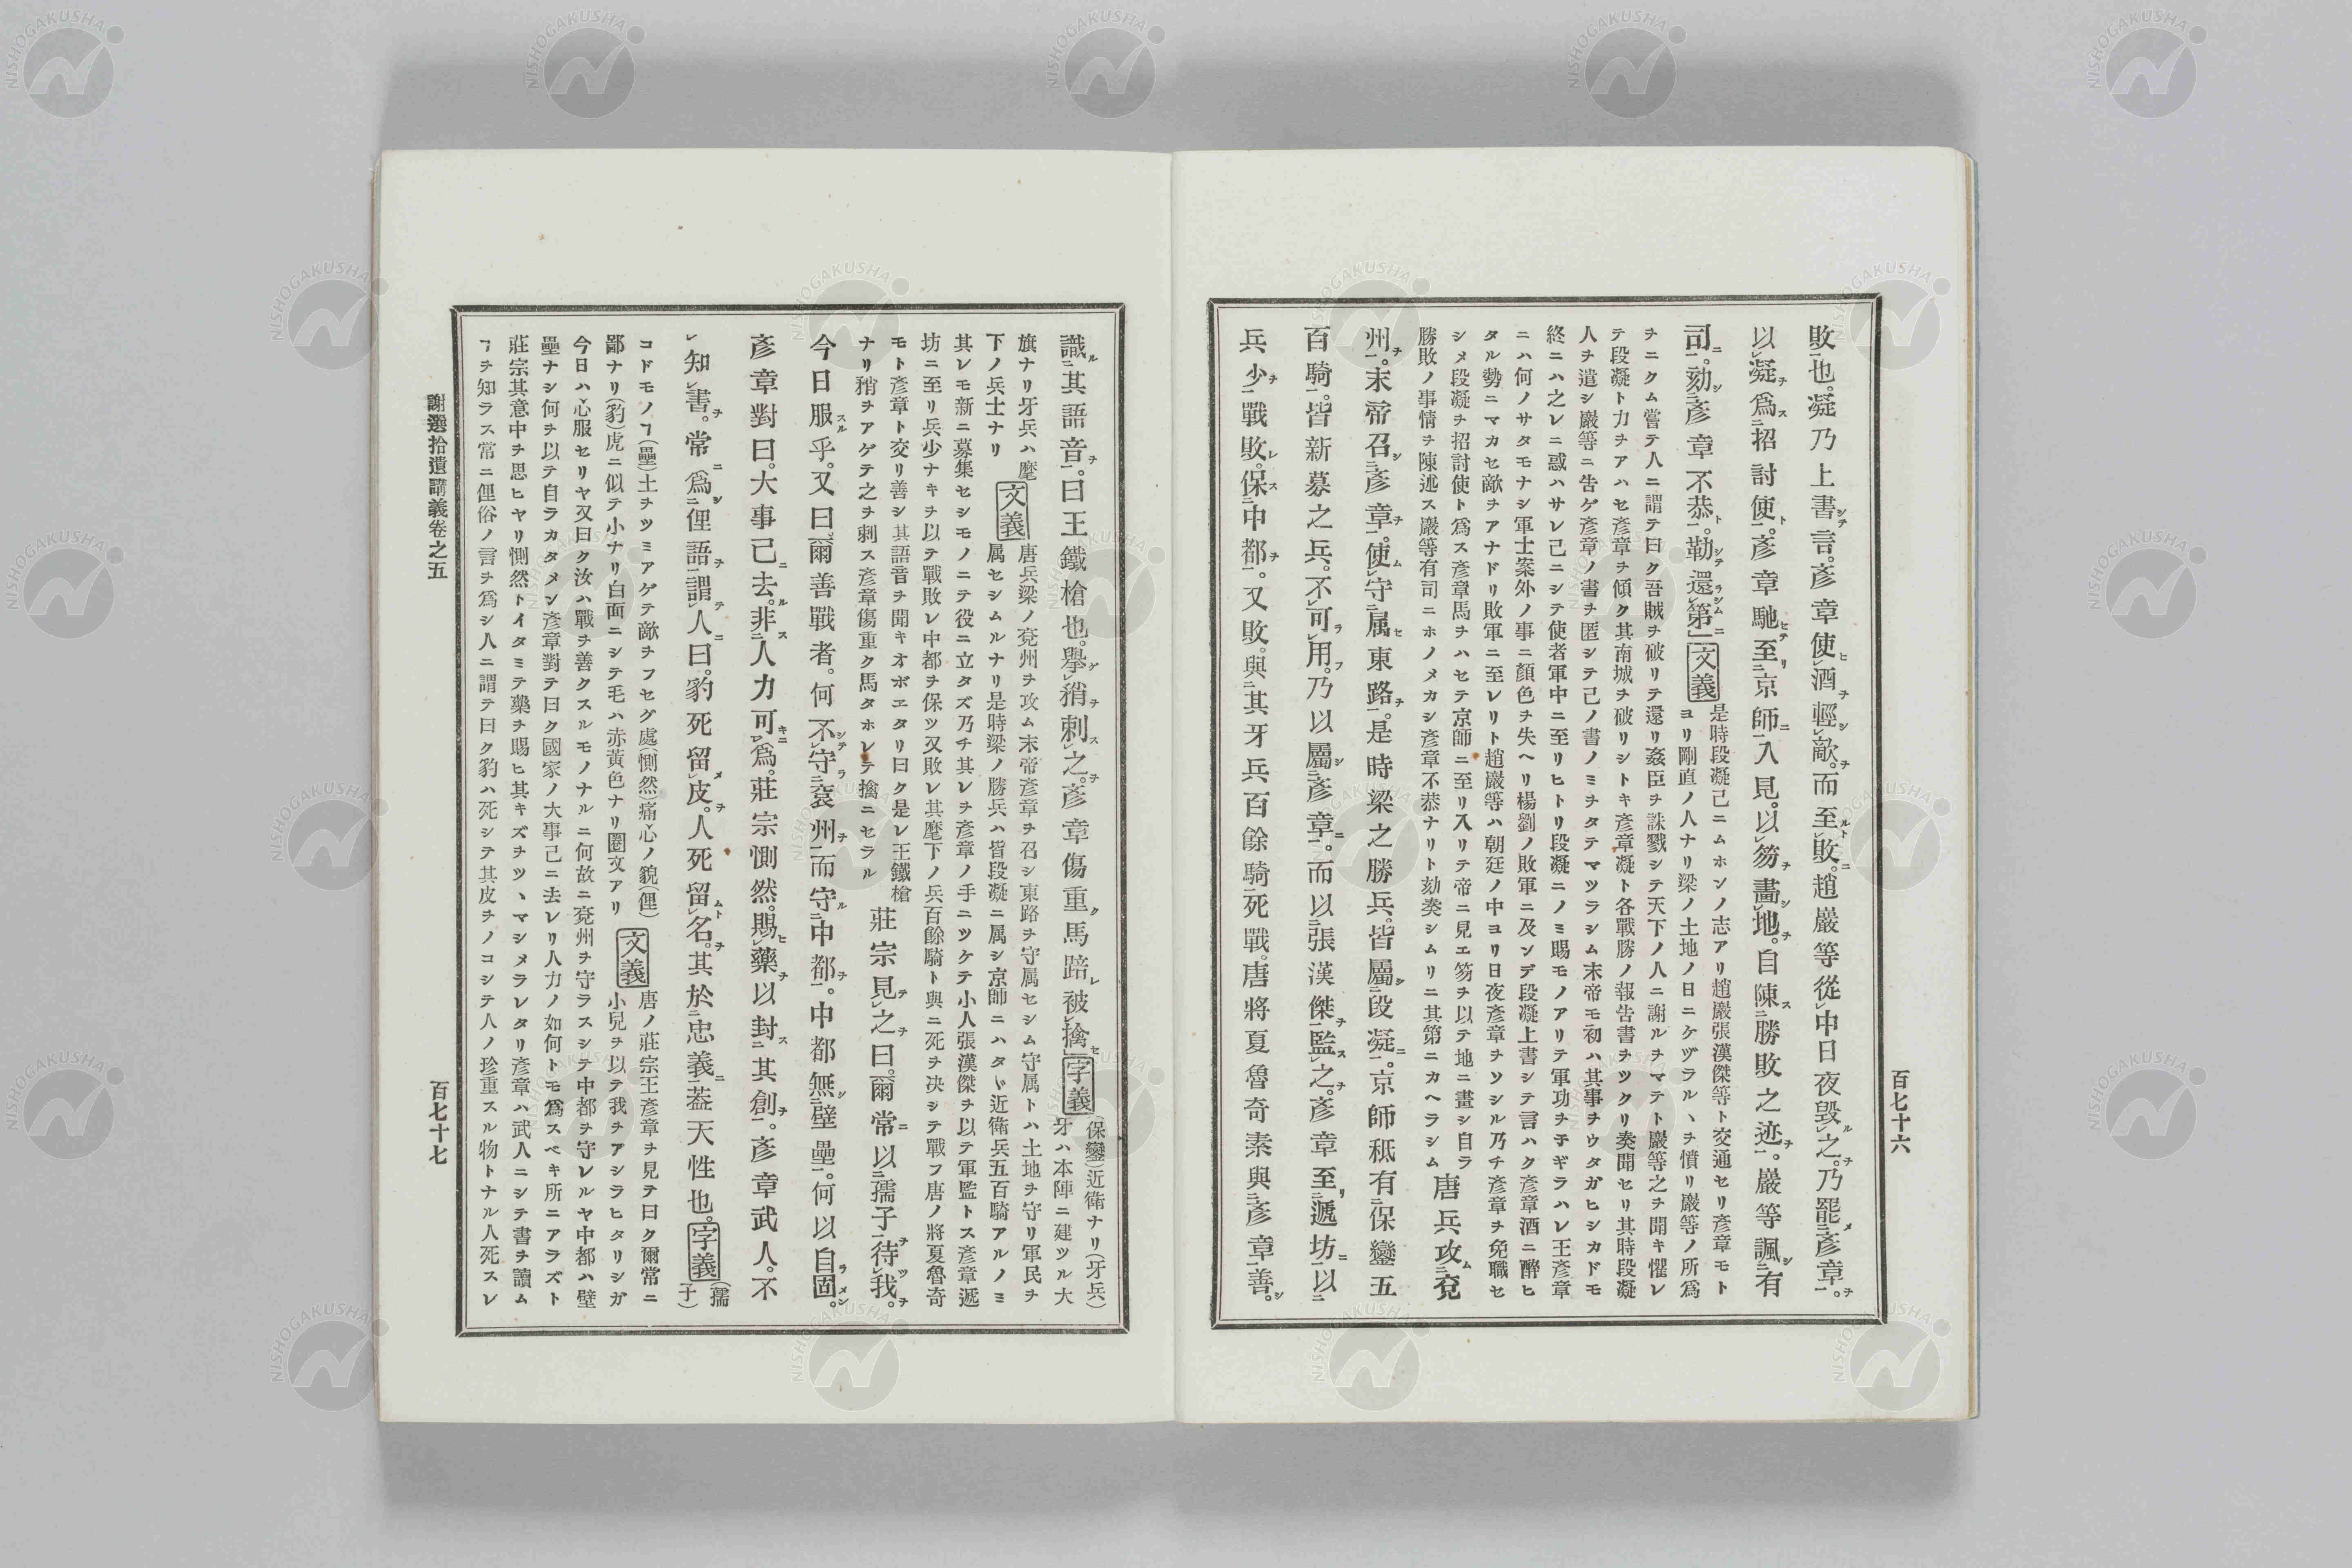 百七十六
敗也。凝乃上書言。彥章使酒輕敵。而至敗。趙巖等從中日夜毀之。乃罷彥章。
以凝爲招討使。彥章馳至京師入見。以笏畫地。自陳勝敗之迹。巖等諷有
司。劾彥章不恭。勒還第」文義
是時段凝己ニムホンノ志アリ趙巖張漢傑等ト交通セリ彥章モト
ヨリ剛直ノ人ナリ梁ノ土地ノ日ニケヅラルヽヲ憤リ巖等ノ所爲
ヲニクム嘗テ人ニ謂テ曰ク吾賊ヲ破リテ還リ姦臣ヲ誅戮シテ天下ノ人ニ謝ルヲマテト巖等之ヲ聞キ懼レ
テ段凝ト力ヲアハセ彥章ヲ傾ク其南城ヲ破リシトキ彥章凝ト各戰勝ノ報告書ヲツクリ奏聞セリ其時段凝
人ヲ遣シ巖等ニ告ゲ彥章ノ書ヲ匿シテ己ノ書ノミヲタテマツラシム末帝モ初ハ其事ヲウタガヒシカドモ
終ニハ之レニ惑ハサレ己ニシテ使者軍中ニ至リヒトリ段凝ニノミ賜モノアリテ軍功ヲネギラハレ王彥章
ニハ何ノサタモナシ軍士案外ノ事ニ顏色ヲ失ヘリ楊劉ノ敗軍ニ及ンデ段凝上書シテ言ハク彥章酒ニ醉ヒ
タル勢ニマカセ敵ヲアナドリ敗軍ニ至レリト趙巖等ハ朝廷ノ中ヨリ日夜彥章ヲソシル乃チ彥章ヲ免職セ
シメ段凝ヲ招討使ト爲ス彥章馬ヲハセテ京師ニ至リ入リテ帝ニ見エ笏ヲ以テ地ニ畫シ自ラ
勝敗ノ事情ヲ陳述ス巖等有司ニホノメカシ彥章不恭ナリト劾奏シムリニ其第ニカヘラシム
唐兵攻兗
州。末帝召彥章。使守属東路。是時梁之勝兵。皆屬段凝。京師秪有保鑾五
百騎。皆新募之兵。不可用。乃以屬彥章。而以張漢傑監之。彥章至遞坊。以
兵少戰敗。保中都。又敗。與其牙兵百餘騎死戰。唐將夏魯奇素與彥章善。
識其語音。曰王鐵槍也。擧矟刺之。彥章傷重馬踣被擒字義
(保鑾)近衛ナリ(牙兵)
牙ハ本陣ニ建ツル大
旗ナリ牙兵ハ麾
下ノ兵士ナリ
文義
唐兵梁ノ兗州ヲ攻ム末帝彥章ヲ召シ東路ヲ守属セシム守属トハ土地ヲ守リ軍民ヲ
属セシムルナリ是時梁ノ勝兵ハ皆段凝ニ属シ京師ニハタヾ近衛兵五百騎アルノミ
其レモ新ニ募集セシモノニテ役ニ立タズ乃チ其レヲ彥章ノ手ニツケテ小人張漢傑ヲ以テ軍監トス彥章遞
坊ニ至リ兵少ナキヲ以テ戰敗レ中都ヲ保ツ又敗レ其麾下ノ兵百餘騎ト與ニ死ヲ决シテ戰フ唐ノ將夏魯奇
モト彥章ト交リ善シ其語音ヲ聞キオボエタリ曰ク是レ王鐵槍
ナリ矟ヲアゲテ之ヲ刺ス彥章傷重ク馬タホレテ擒ニセラル
莊宗見之曰。爾常以孺子待我。
今日服乎。又曰。爾善戰者。何不守兗州而守中都。中都無壁壘。何以自固。
彥章對曰。大事己去。非人力可爲。莊宗惻然。賜藥以封其創。彥章武人。不
知書。常爲俚語謂人曰。豹死留皮。人死留名。其於忠義蓋天性也。字義
(孺
子)
コドモノヿ(壘)土ヲツミアゲテ敵ヲフセグ處(惻然)痛心ノ貌(俚)
鄙ナリ(豹)虎ニ似テ小ナリ白面ニシテ毛ハ赤黃色ナリ圈文アリ
文義
唐ノ莊宗王彥章ヲ見テ曰ク爾常ニ
小兒ヲ以テ我ヲアシラヒタリシガ
今日ハ心服セリヤ又曰ク汝ハ戰ヲ善クスルモノナルニ何故ニ兗州ヲ守ラスシテ中都ヲ守レルヤ中都ハ壁
壘ナシ何ヲ以テ自ラカタメン彥章對テ曰ク國家ノ大事己ニ去レリ人力ノ如何トモ爲スベキ所ニアラズト
莊宗其意中ヲ思ヒヤリ惻然トイタミテ藥ヲ賜ヒ其キズヲツヽマシメラレタリ彥章ハ武人ニシテ書ヲ讀ム
ヿヲ知ラス常ニ俚俗ノ言ヲ爲シ人ニ謂テ曰ク豹ハ死シテ其皮ヲノコシテ人ノ珍重スル物トナル人死スレ
謝選拾遺講義卷之五
百七十七